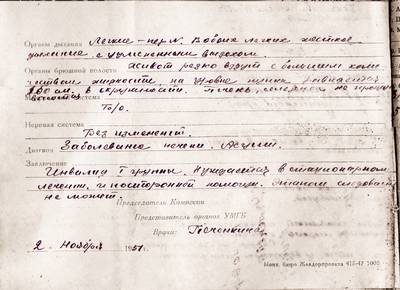 Органы дыхания Легкие – норм. В обоих легких жесткое
дыхание с удлиненным выдохом.
Органы брюшной полости Живот резко вздут с большим коли
чеством жидкости, на уровне пупка
100 см. в окружности. Печень, селезенка не прощуп
система
Т/о.
Нервная система
Без изменений.
Диагноз Заболевание печени. Асцит.
Заключение
Инвалид I группы. Нуждается в стационарном
лечении и посторонней помощи. Этапом следовать
не может.
Председатель Комиссии
Представитель органов УМГБ
Врачи: Печенкина
2 Ноября 1951.
бюро Желдорпроекта 415-47 5000